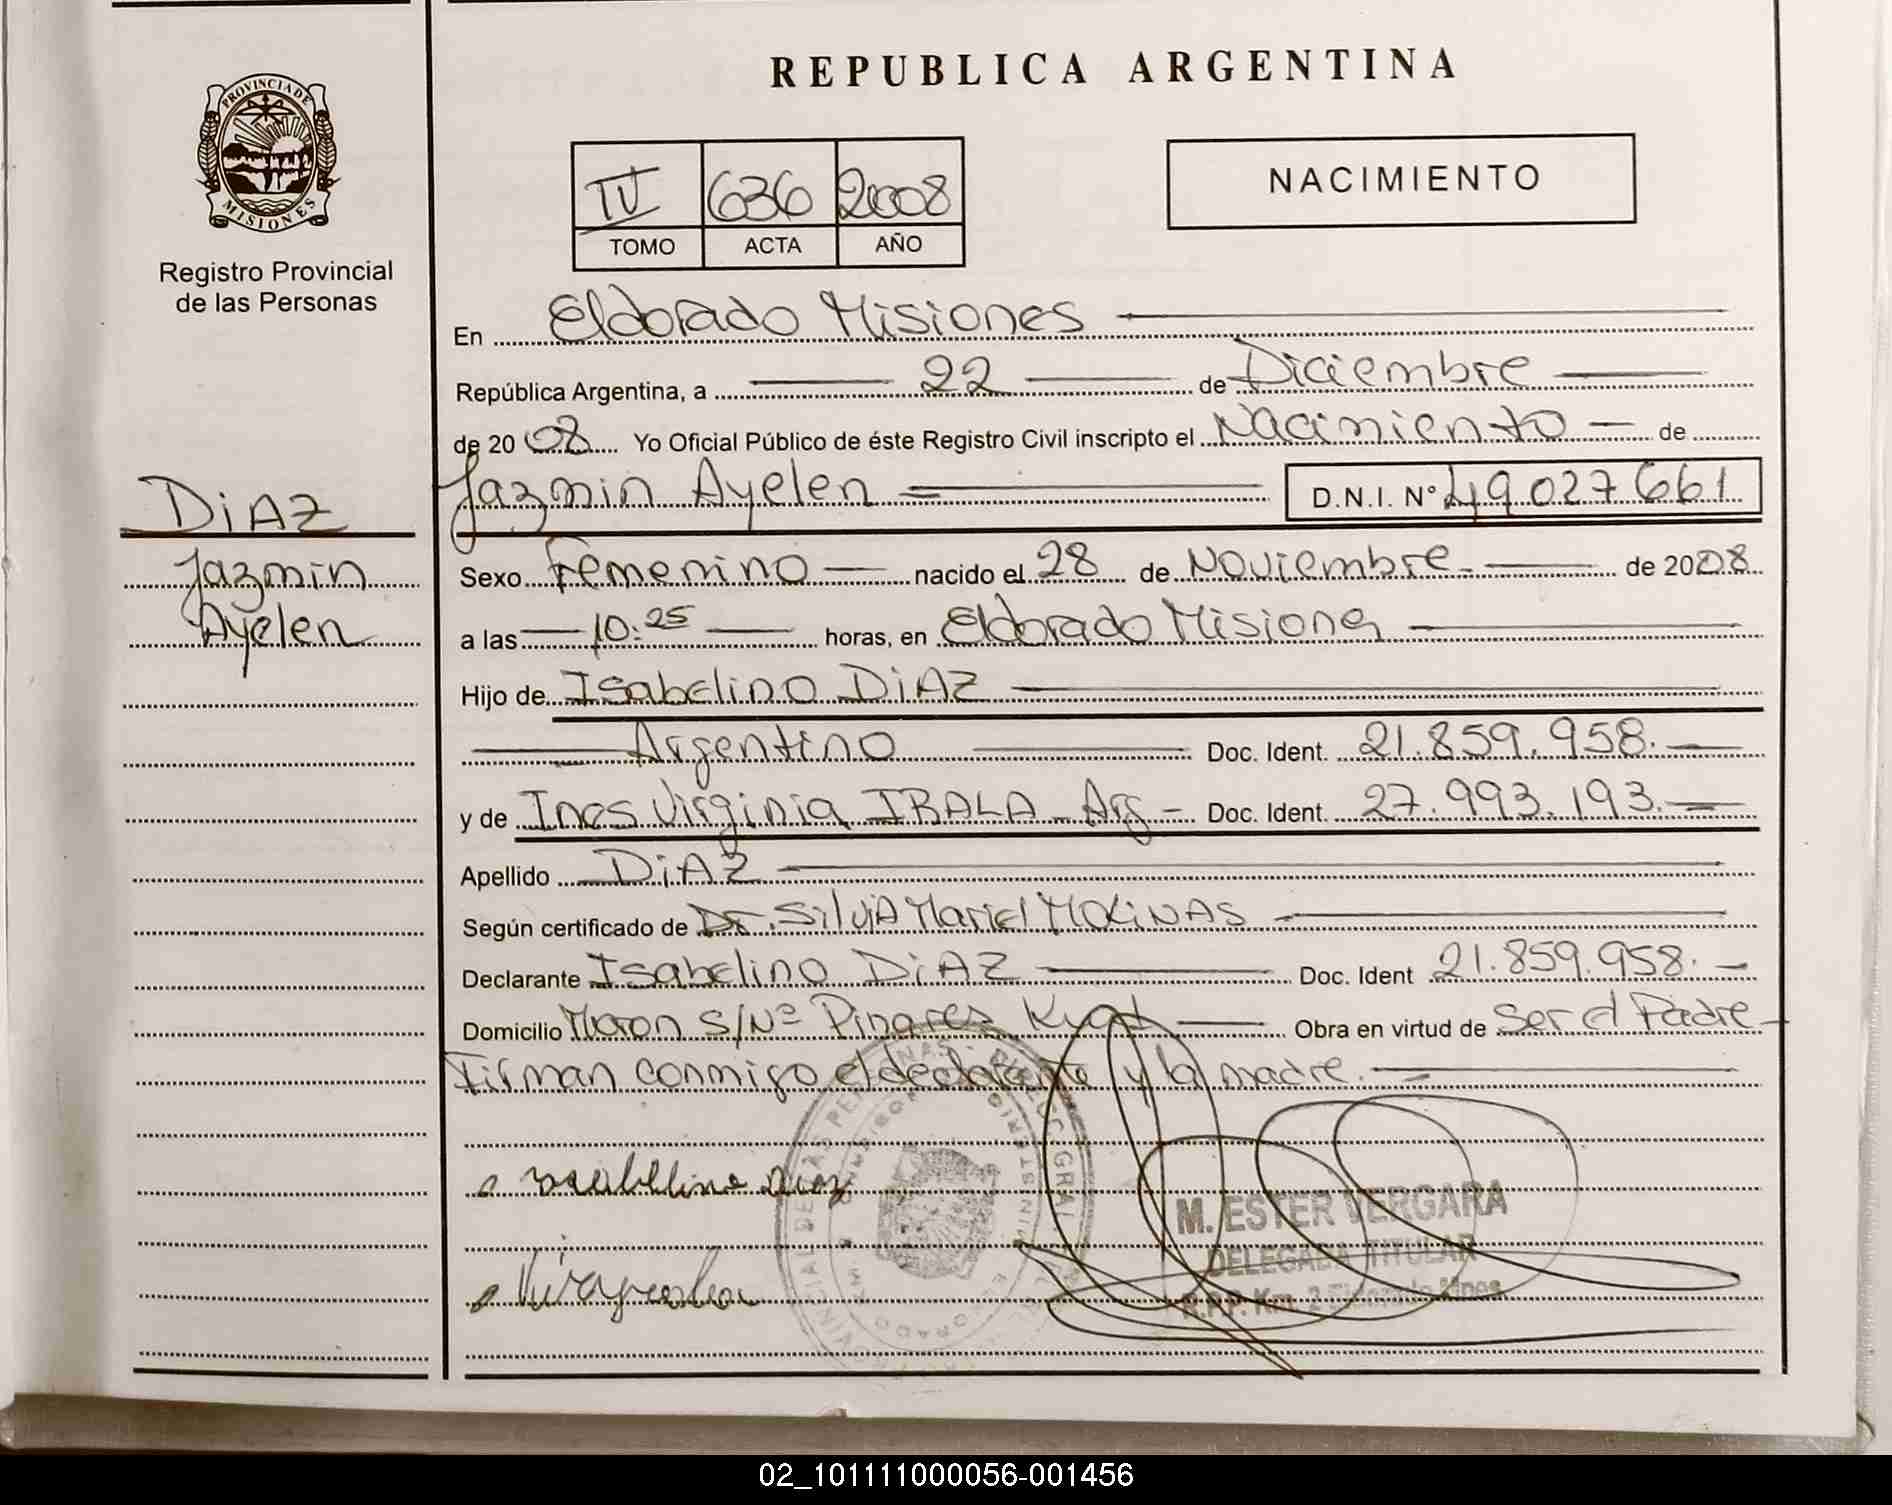 REPUBLICA ARGENTINA
PROVINCIA DE MISIONES
Registro Provincial
de las Personas
IV 636 2008
TOMO ACTA AÑO
NACIMIENTO
DiAZ
Jazmin
Ayelen
En Eldorado Misiones
República Argentina, a 22 de Diciembre
de 2008 Yo Oficial Público de éste Registro Civil inscripto el Nacimiento de
Jazmin Ayelen D.N.I. Nº 49027661
Sexo Femenino nacido el 28 de Noviembre de 2008
a las 10:25 horas, en Eldorado Misiones
Hijo de Isabelino DiAZ
Argentino Doc. Ident. 21.859.958.
y de Ines Virginia IBALA Arg Doc. Ident. 27.993.193.
Apellido DiAZ
Según certificado de Dr. Silvia Mariel MOLiNAS
Declarante Isabelino DiAZ Doc. Ident 21.859.958.
Domicilio Moron S/Nº Pinares Obra en virtud de Ser el Padre
Firman conmigo el declarante y la madre.
M. ESTER VERGARA
DELEGADA TITULAR
R.P.P. Km. 2 Eldorado Mnes
02_101111000056-001456